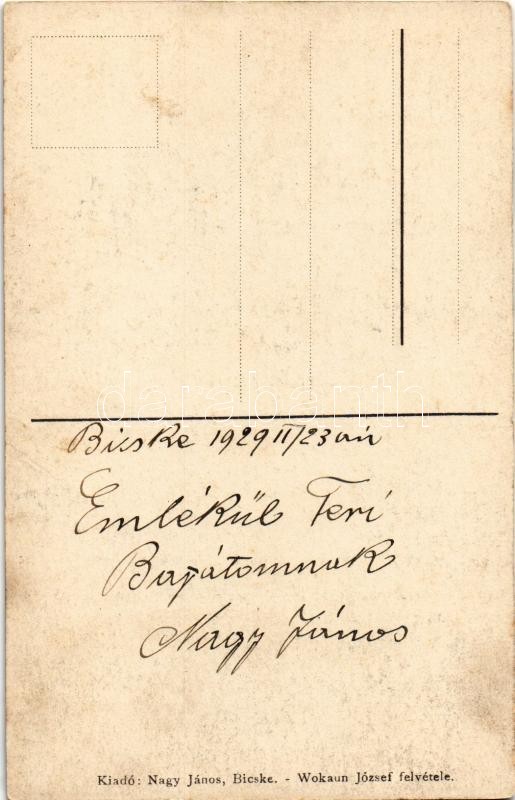 Bicske 1929 II/23 án
Emlékül Teri
Barátomnak
Nagy János
Kiadó: Nagy János, Bicske. - Wokaun József felvétele.
darabanth